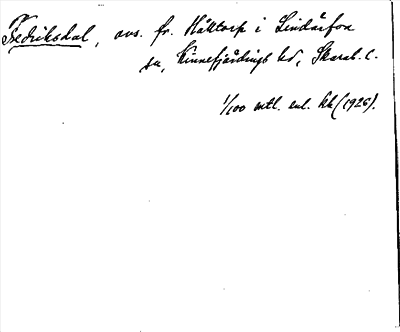 Fredriksdal, avs. fr. Håktorp i Lindärfva
sn, Kinnefjärdings hd, Skarab. l.
1/100 mtl. enl. kk (1926).